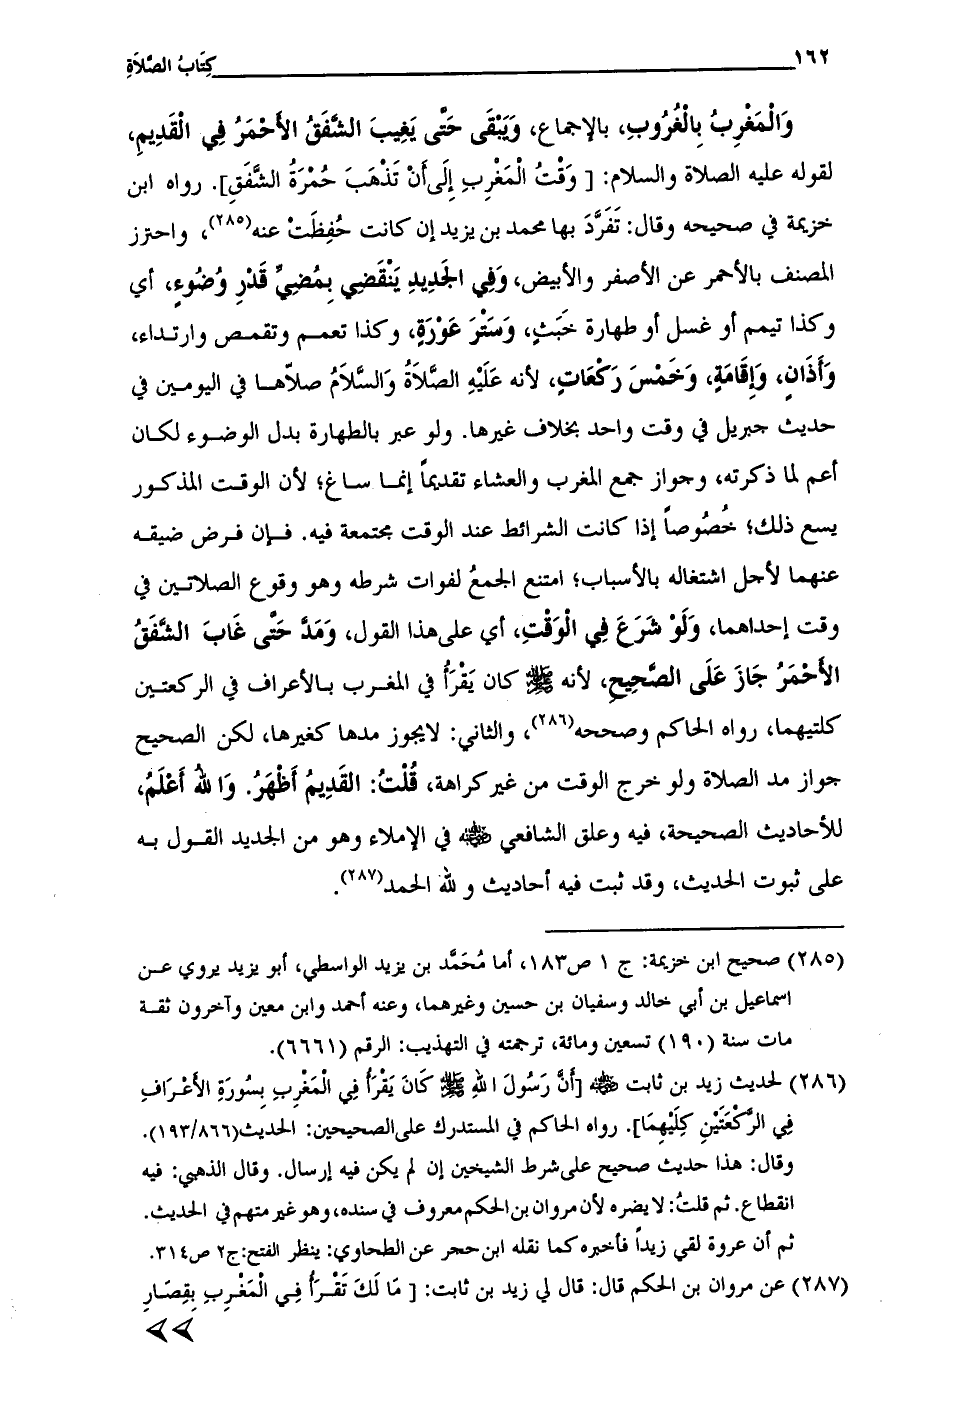 ١٦٢ كِتَابُ الصَّلاَةِ
وَالْمَغْرِبُ بِالْغُرُوبِ، بالإجماع، وَيَبْقَى حَتَّى يَغِيبَ الشَّفَقُ الأَحْمَرُ فِي الْقَدِيمِ،
لقوله عليه الصلاة والسلام: [ وَقْتُ الْمَغْرِبِ إِلَى أَنْ تَذْهَبَ حُمْرَةُ الشَّفَقِ]. رواه ابن
خزيمة في صحيحه وقال: تَفَرَّدَ بها محمد بن يزيد إن كانت حُفِظَتْ عنه(٢٨٥)، واحترز
المصنف بالأحمر عن الأصفر والأبيض، وَفِي الجَدِيدِ يَنْقَضِي بِمُضِيِّ قَدْرِ وُضُوءٍ، أي
وكذا تيمم أو غسل أو طهارة خَبَثٍ، وَسَتْرَ عَوْرَةٍ، وكذا تعمم وتقمص وارتداء،
وَأَذَانٍ، وَإِقَامَةٍ، وَخَمْسَ رَكْعَاتٍ، لأنه عَلَيْهِ الصَّلاَةُ وَالسَّلاَمُ صلاّها في اليومين في
حديث جبريل في وقت واحد بخلاف غيرها. ولو عبر بالطهارة بدل الوضوء لكان
أعم لما ذكرته، وجواز جمع المغرب والعشاء تقديماً إنما ساغ؛ لأن الوقت المذكور
يسع ذلك؛ خُصُوصاً إذا كانت الشرائط عند الوقت مجتمعة فيه. فإن فرض ضيقه
عنهما لأجل اشتغاله بالأسباب؛ امتنع الجمعُ لفوات شرطه وهو وقوع الصلاتين في
وقت إحداهما، وَلَوْ شَرَعَ فِي الْوَقْتِ، أي على هذا القول، وَمَدَّ حَتَّى غَابَ الشَّفَقُ
الأَحْمَرُ جَازَ عَلَى الصَّحِيحِ، لأنه ﷺ كان يَقْرَأُ في المغرب بالأعراف في الركعتين
كلتيهما، رواه الحاكم وصححه(٢٨٦)، والثاني: لايجوز مدها كغيرها، لكن الصحيح
جواز مد الصلاة ولو خرج الوقت من غير كراهة، قُلْتُ: القَدِيمُ أَظْهَرُ. وَا للهُ أَعْلَمُ،
للأحاديث الصحيحة، فيه وعلق الشافعي ﷺ في الإملاء وهو من الجديد القول به
على ثبوت الحديث، وقد ثبت فيه أحاديث و لله الحمد(٢٨٧).
(٢٨٥) صحيح ابن خزيمة: ج ١ ص١٨٣، أما مُحَمَّد بن يزيد الواسطي، أبو يزيد يروي عن
اسماعيل بن أبي خالد وسفيان بن حسين وغيرهما، وعنه أحمد وابن معين وآخرون ثقة
مات سنة (١٩٠) تسعين ومائة، ترجمته في التهذيب: الرقم (٦٦٦١).
(٢٨٦) لحديث زيد بن ثابت ﷺ [أَنَّ رَسُولَ اللهِ ﷺ كَانَ يَقْرَأُ فِي الْمَغْرِبِ بِسُورَةِ الأَعْرَافِ
فِي الرَّكْعَتَيْنِ كِلَيْهِمَا]. رواه الحاكم في المستدرك على الصحيحين: الحديث(١٩٣/٨٦٦).
وقال: هذا حديث صحيح على شرط الشيخين إن لم يكن فيه إرسال. وقال الذهبي: فيه
انقطاع. ثم قلتُ: لايضره لأن مروان بن الحكم معروف في سنده، وهو غير متهم في الحديث.
ثم أن عروة لقي زيداً فأخبره كما نقله ابن حجر عن الطحاوي: ينظر الفتح:ج٢ ص٣١٤.
(٢٨٧) عن مروان بن الحكم قال: قال لي زيد بن ثابت: [ مَا لَكَ تَقْرَأُ فِي الْمَغْرِبِ بِقِصَارِ